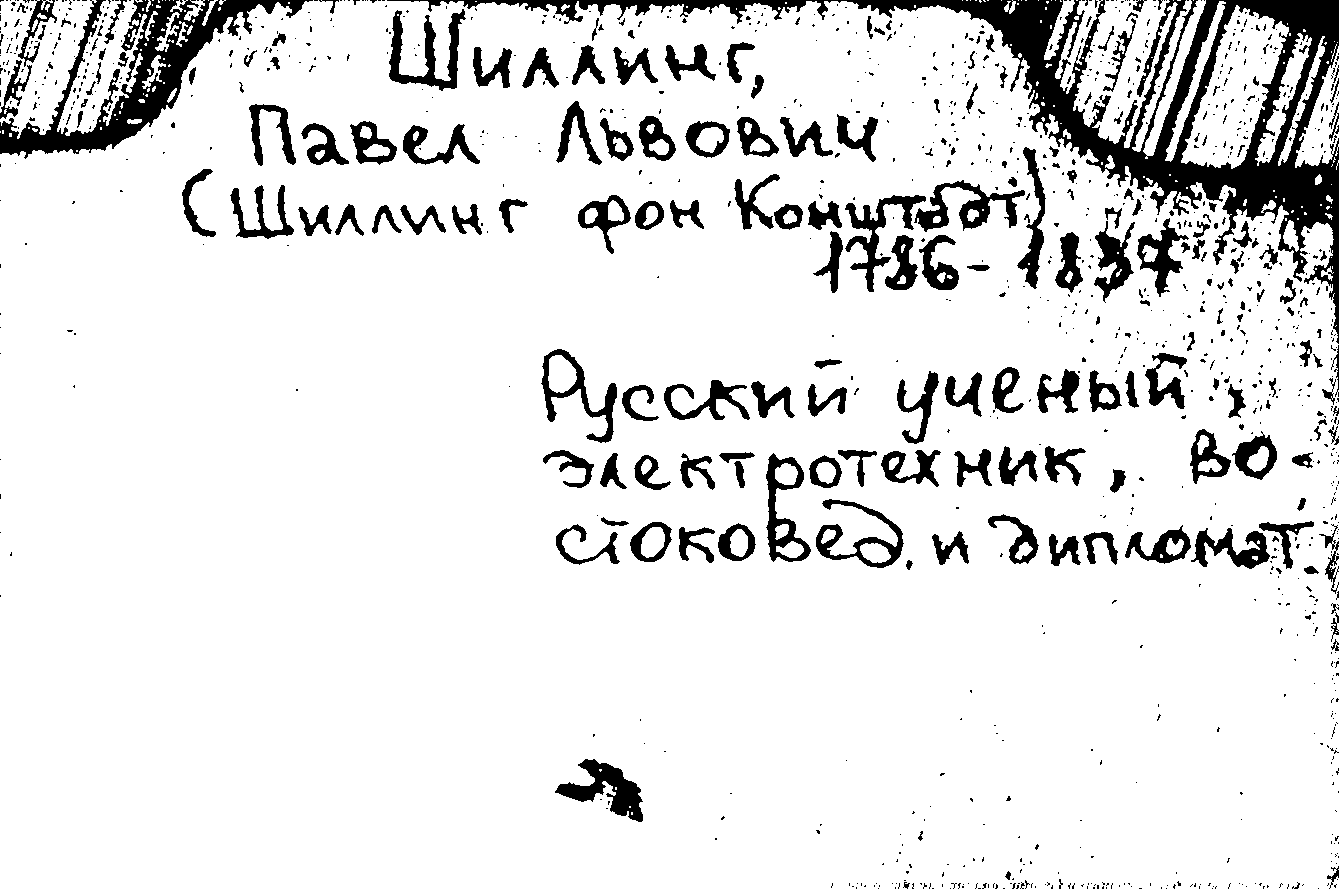 Шиллинг,
Павел Львович
(Шиллинг фон Конштадт)
1786-1837
Русский ученый,
электротехник, во-
стоковед, и дипломат.